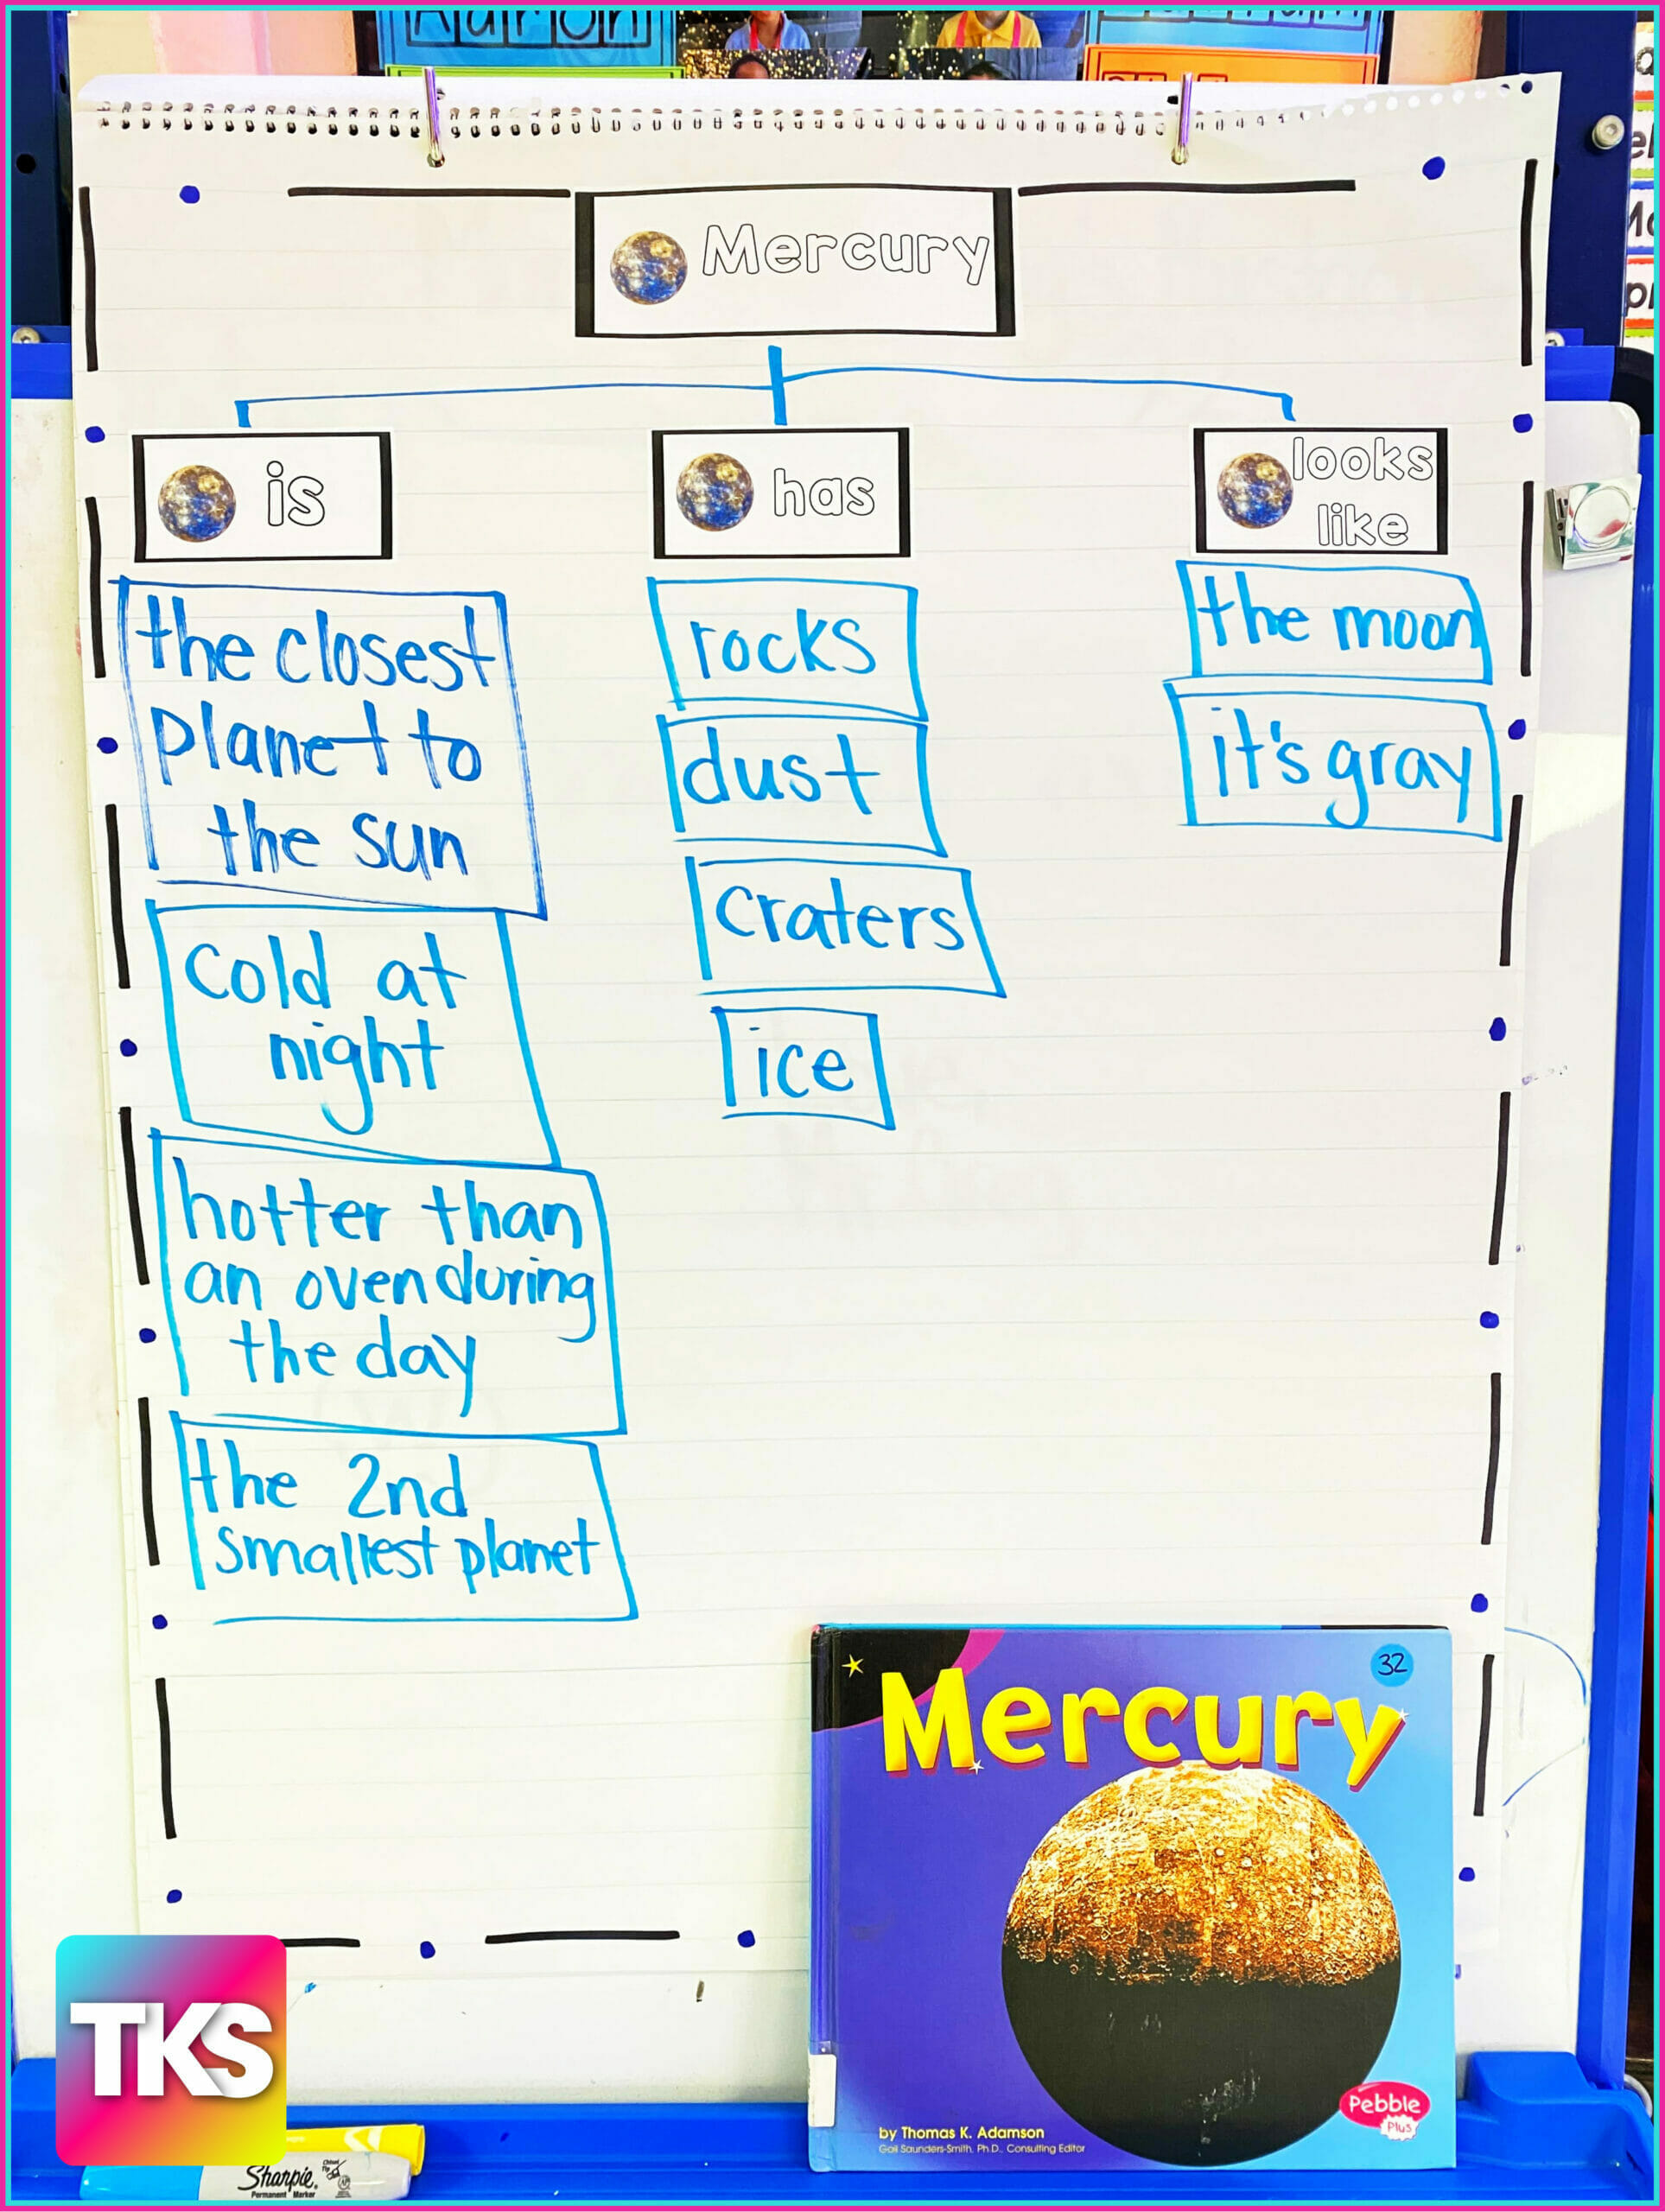 Aaron
Mercury
is
has
looks
like
the closest
planet to
the sun
cold at
night
hotter than
an oven during
the day
the 2nd
smallest planet
rocks
dust
craters
ice
the moon
it's gray
32
Mercury
by Thomas K. Adamson
Gail Saunders-Smith, Ph.D., Consulting Editor
Pebble
Plus
TKS
Sharpie
Permanent Marker